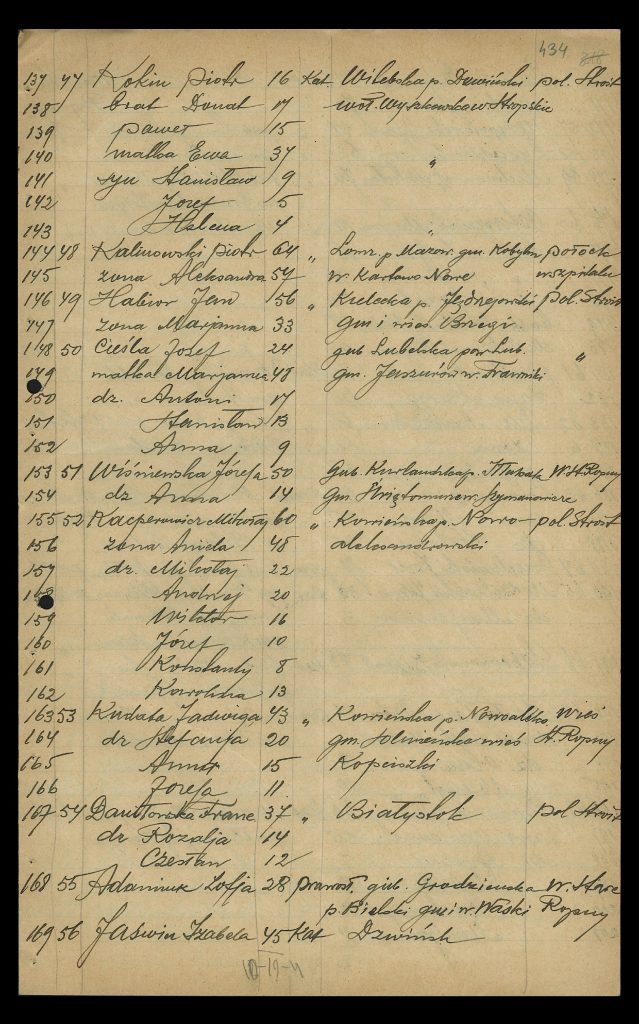 434
137 47 Kokin Piotr 16 Kat. Witebska p. Dzwiński pol. Stroit
138 brat Donat 17 woł. Wyszkowska w Stropskie
139 Paweł 15
140 matka Ewa 37 "
141 syn Stanisław 9
142 Józef 5
143 Helena 4 "
144 48 Kalinowski Piotr 64 " Łomż. p. Mazow. gm. Kobylin połock
145 żona Aleksandra 57 w. Kartowo Nowe w szpitalu
146 49 Haliwor Jan 56 " Kielecka p. Jędrzejowski pol. Stroit
147 żona Marjanna 33 gm i wieś Brzegi
148 50 Cieśla Józef 24 gub Lubelska pow Lub. "
149 matka Marjanna 48 gm. Jaszczów w. Trawniki
150 dz. Antoni 17
151 Stanisław 13
152 Anna 9
153 51 Wiśniewska Józefa 50 Gub. Kurlandzka p. W. St. Ropny
154 dz Anna 14 gm.
155 52 Kacperowicz Mikołaj 60 " Kowieńska p. Nowo- pol. Stroit
156 żona Aniela 48 aleksandrowski
157 dz. Mikołaj 22
158 Andrzej 20
159 Wiktor 16
160 Józef 10
161 Konstanty 8
162 Karolina 13
163 53 Kudata Jadwiga 43 " Kowieńska p. Nowoalks. wieś
164 dz Stefanja 20 gm. wieś St. Ropny
165 Anna 15 Kopciszki
166 Józefa 11
167 54 Daniłowska Franc 37 " Białystok pol Stroit
dz Rozalja 14
Czesław 12
168 55 Adamiuk Zofja 28 prawosł. gub. Grodzieńska w. Stare
p. Bielski gm i w. Waśki Ropny
169 56 Jaswin Izabela 45 Kat Dzwińsk